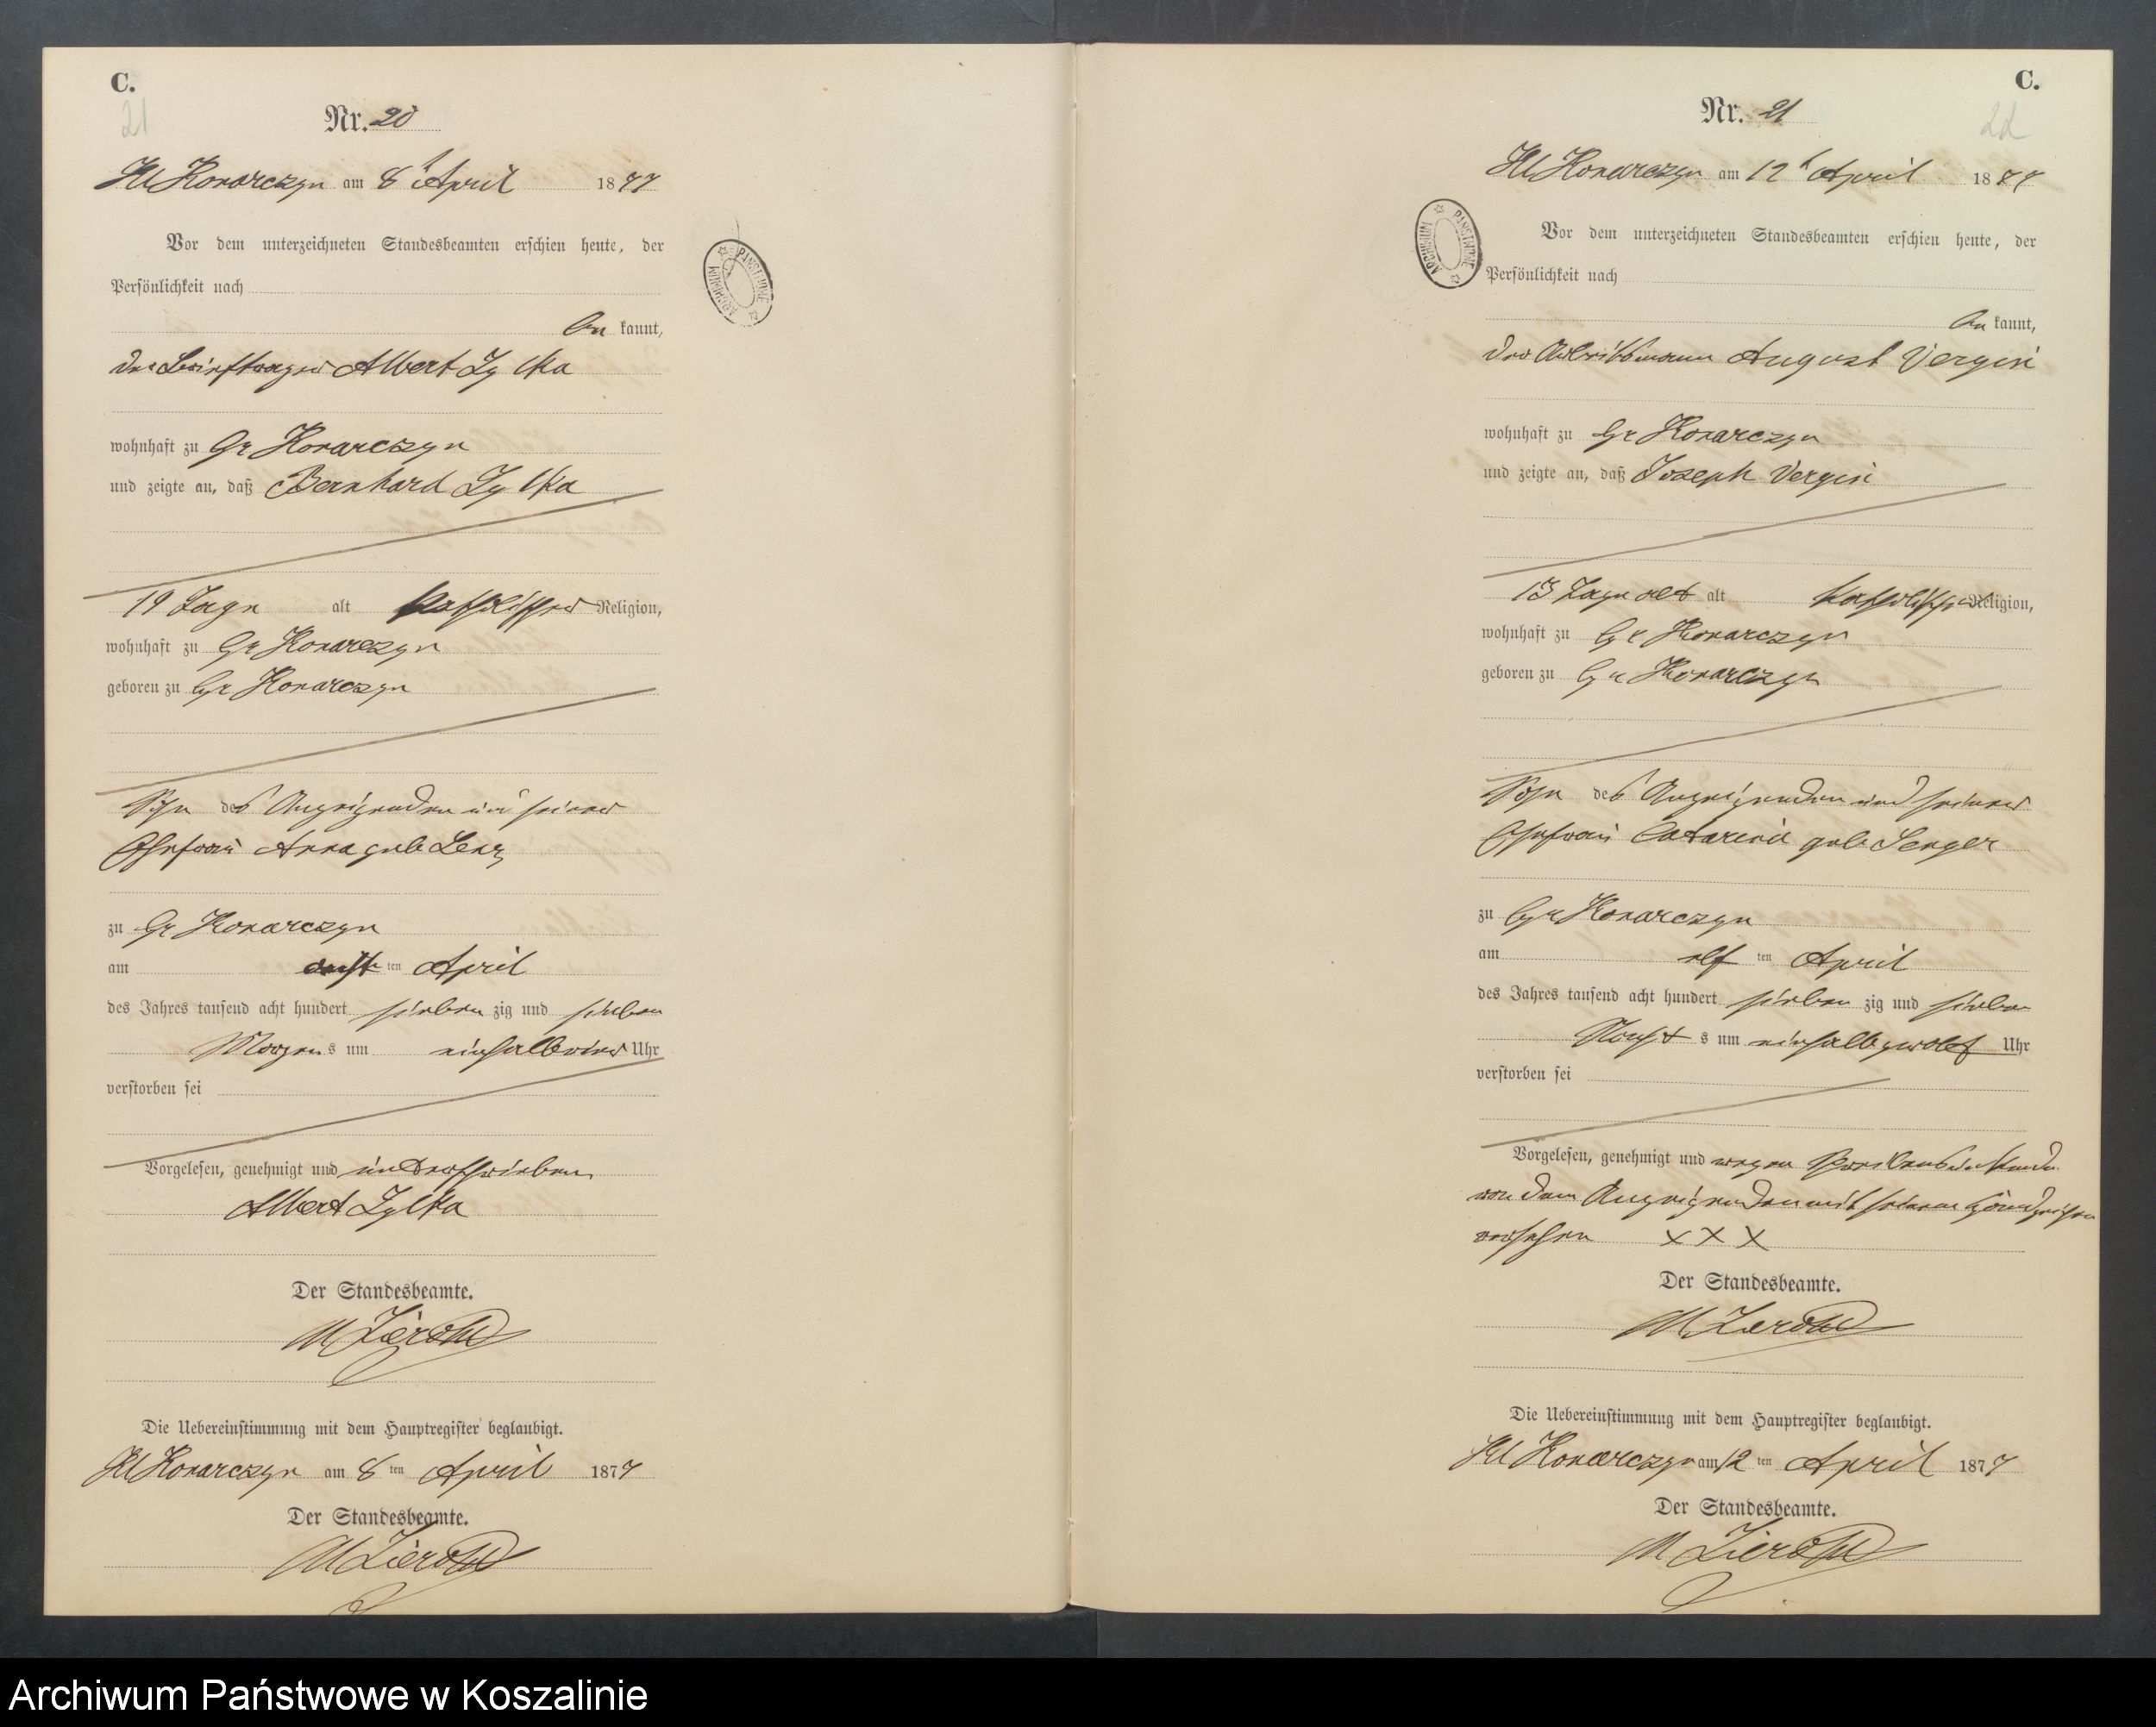 C.
21
Nr. 20
Kl Konarczyn am 8t April 1877
Vor dem unterzeichneten Standesbeamten erschien heute, der
Persönlichkeit nach
be kannt,
der Briefträger Albert Zylka
wohnhaft zu Gr Konarczyn
und zeigte an, daß Bernhard Zylka
19 Tage alt katholischer Religion,
wohnhaft zu Gr Konarczyn
geboren zu Gr Konarczyn
Sohn des Anzeigenden und seiner
Ehefrau Anna geb Lenz
zu Gr Konarczyn
am ten April
des Jahres tausend acht hundert sieben zig und sieben
Morgens um einhalbvier Uhr
verstorben sei
Vorgelesen, genehmigt und unterschrieben
Albert Zylka
Der Standesbeamte.
Die Uebereinstimmung mit dem Hauptregister beglaubigt.
Kl Konarczyn am 8 ten April 1877
Der Standesbeamte.
PANSTWOWE ARCHIWUM
C.
22
Nr. 21
Kl Konarczyn am 12t April 1877
Vor dem unterzeichneten Standesbeamten erschien heute, der
Persönlichkeit nach
be kannt,
der August Vergin
wohnhaft zu Gr Konarczyn
und zeigte an, daß Joseph Vergin
13 Tage alt alt katholischer Religion,
wohnhaft zu Gr Konarczyn
geboren zu Gr Konarczyn
Sohn des Anzeigenden und seiner
Ehefrau Catarina geb Senger
zu Gr Konarczyn
am elf ten April
des Jahres tausend acht hundert sieben zig und sieben
Nacht s um einhalbzwölf Uhr
verstorben sei
Vorgelesen, genehmigt und wegen Schreibensunkunde
von dem Anzeigenden mit seinem Handzeichen
versehen XXX
Der Standesbeamte.
Die Uebereinstimmung mit dem Hauptregister beglaubigt.
Kl Konarczyn am 12 ten April 1877
Der Standesbeamte.
PANSTWOWE ARCHIWUM
Archiwum Państwowe w Koszalinie